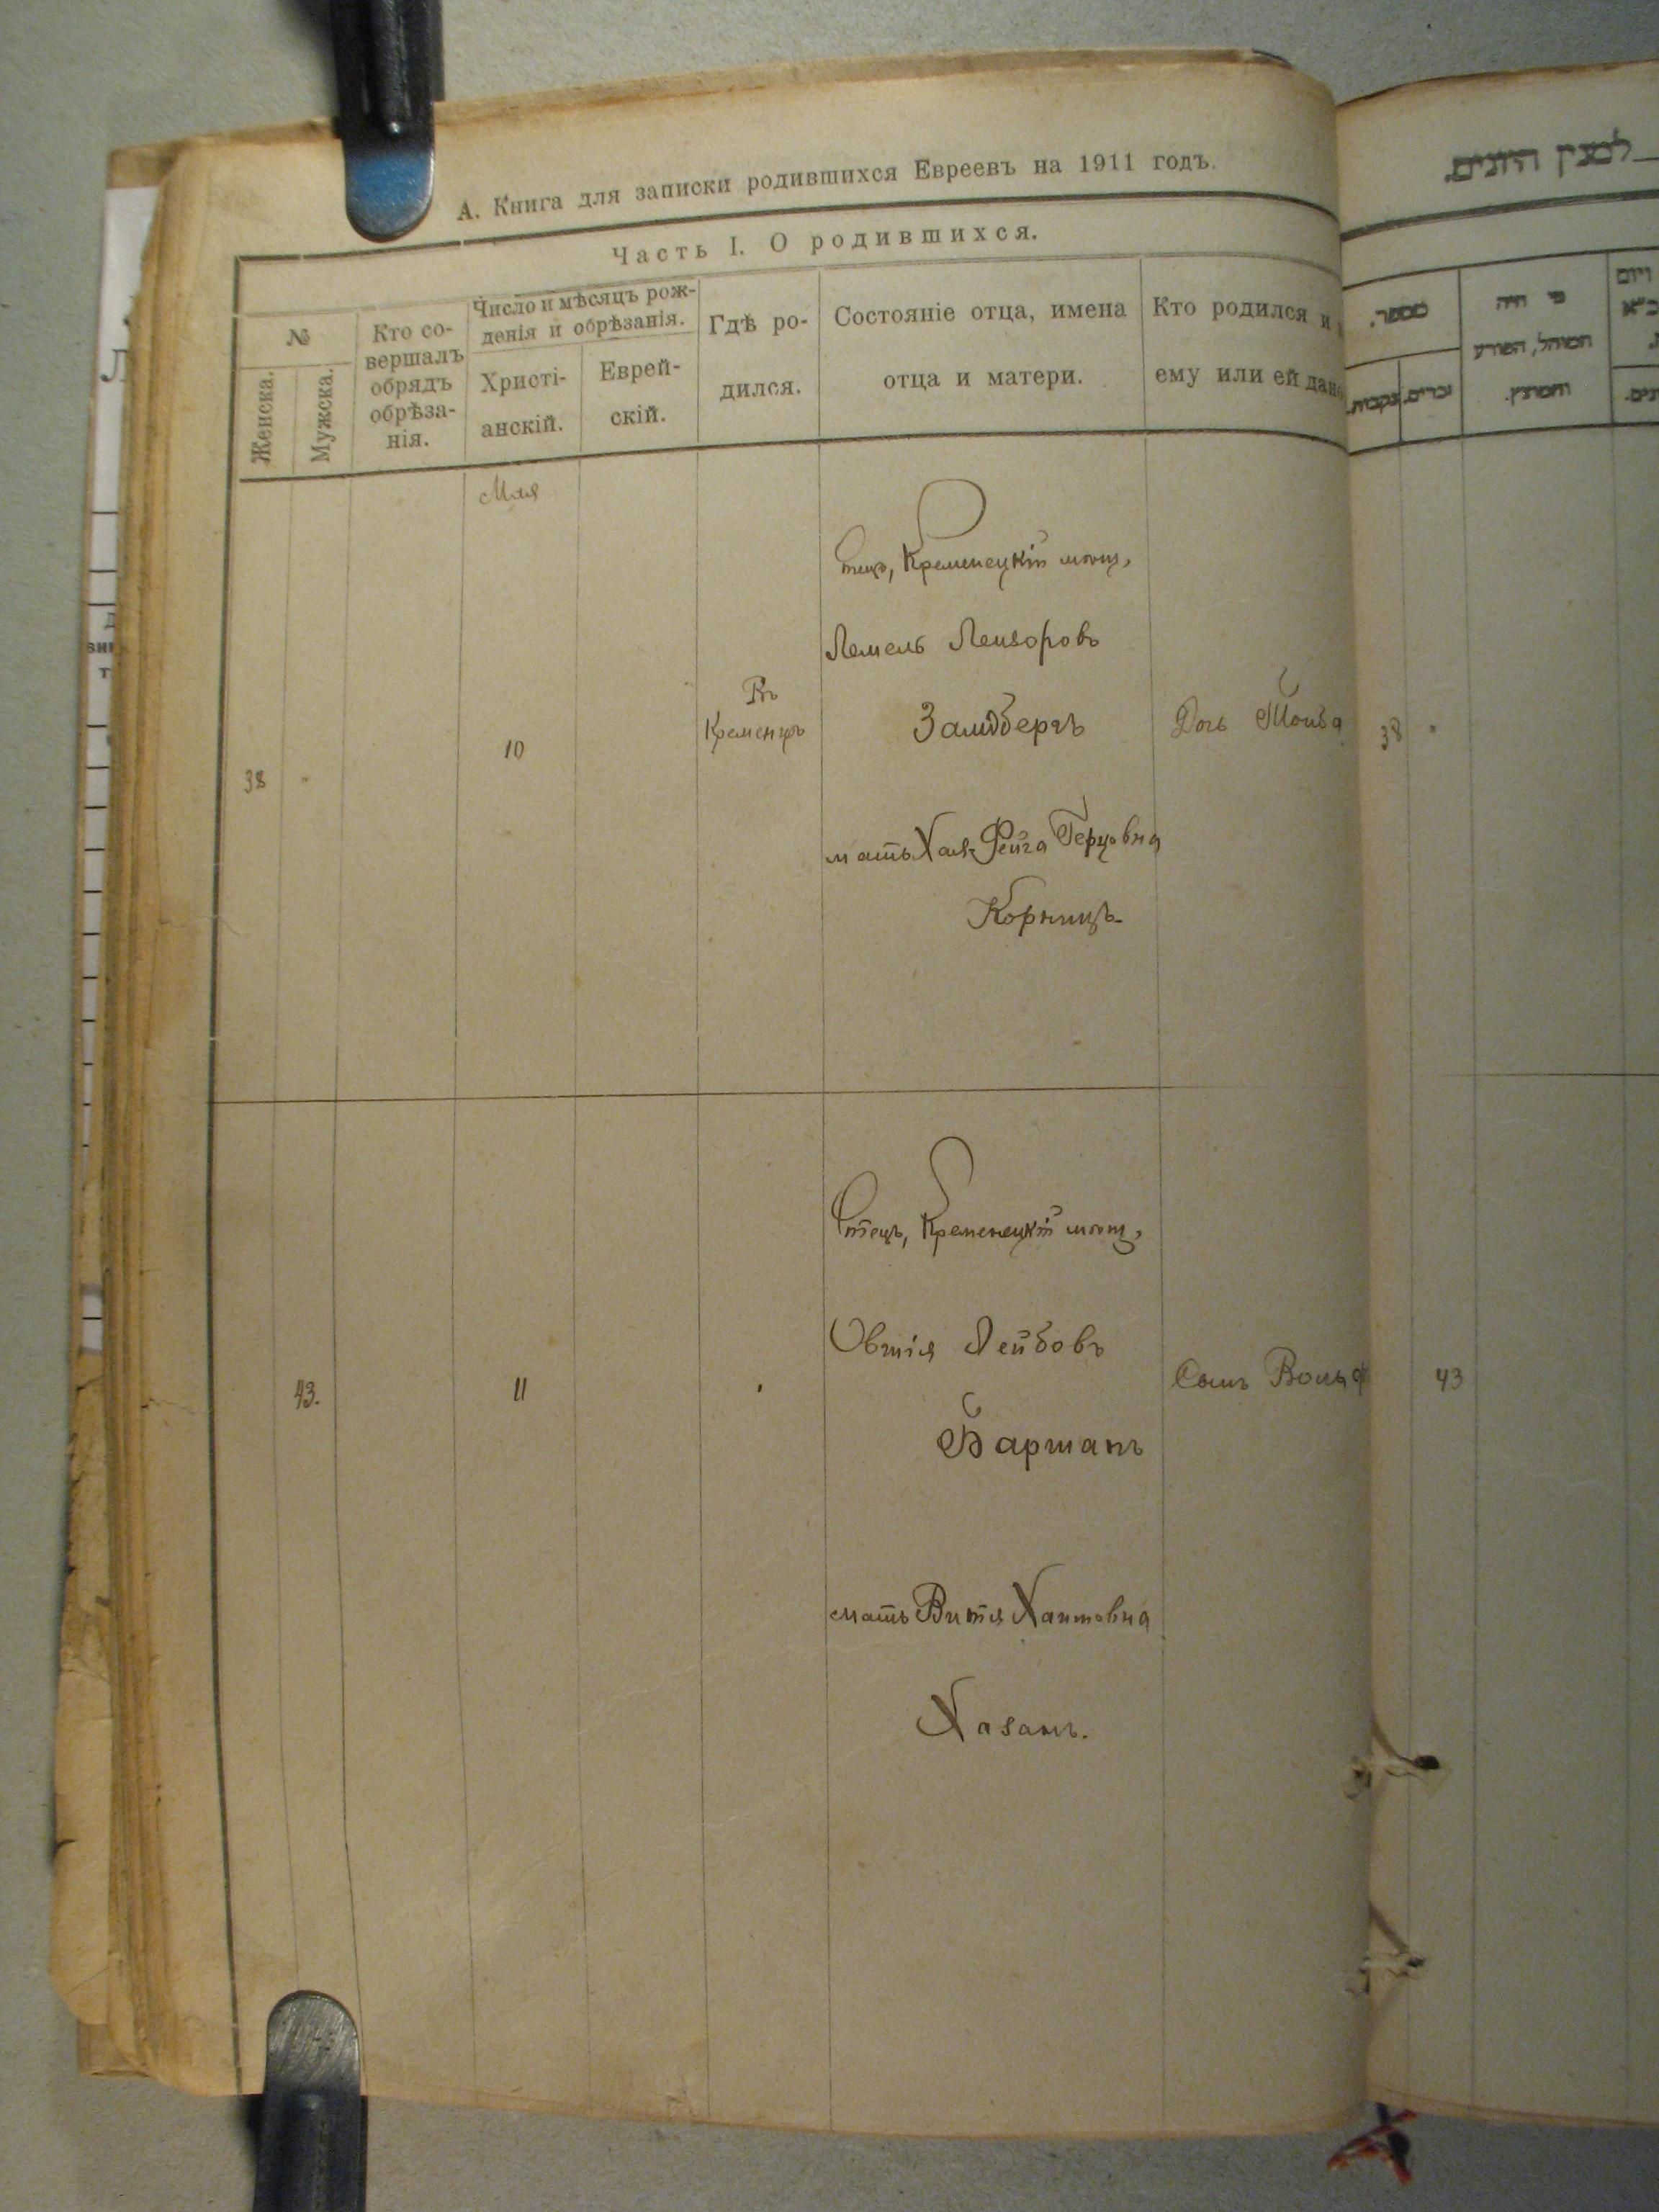 А. Книга для записки родившихся Евреевъ на 1911 годъ.
Часть I. О родившихся.
№
Женска.
Мужска.
Кто со-
вершалъ
обрядъ
обрѣза-
нія.
Число и мѣсяцъ рож-
денія и обрѣзанія.
Христі-
анскій.
Еврей-
скій.
Гдѣ ро-
дился.
Состояніе отца, имена
отца и матери.
Кто родился и
ему или ей дано
Мая
38
10
Въ
Кременцѣ
Отецъ, Кременецкій мѣщ.
Лемель Лейзоровъ
Замдбергъ
мать Хая-Фейга Герцовна
Корницъ
Дочь Тойба
43.
11
Отецъ, Кременецкій мѣщ.
Овшія Лейбовъ
Баршапъ
мать Витя Хаимовна
Хазанъ.
Сынъ Вольф
מספר.
נקבות.
זכרים.
מי היה
המוהל, הפורע
והמוצץ.
ויום
38
43